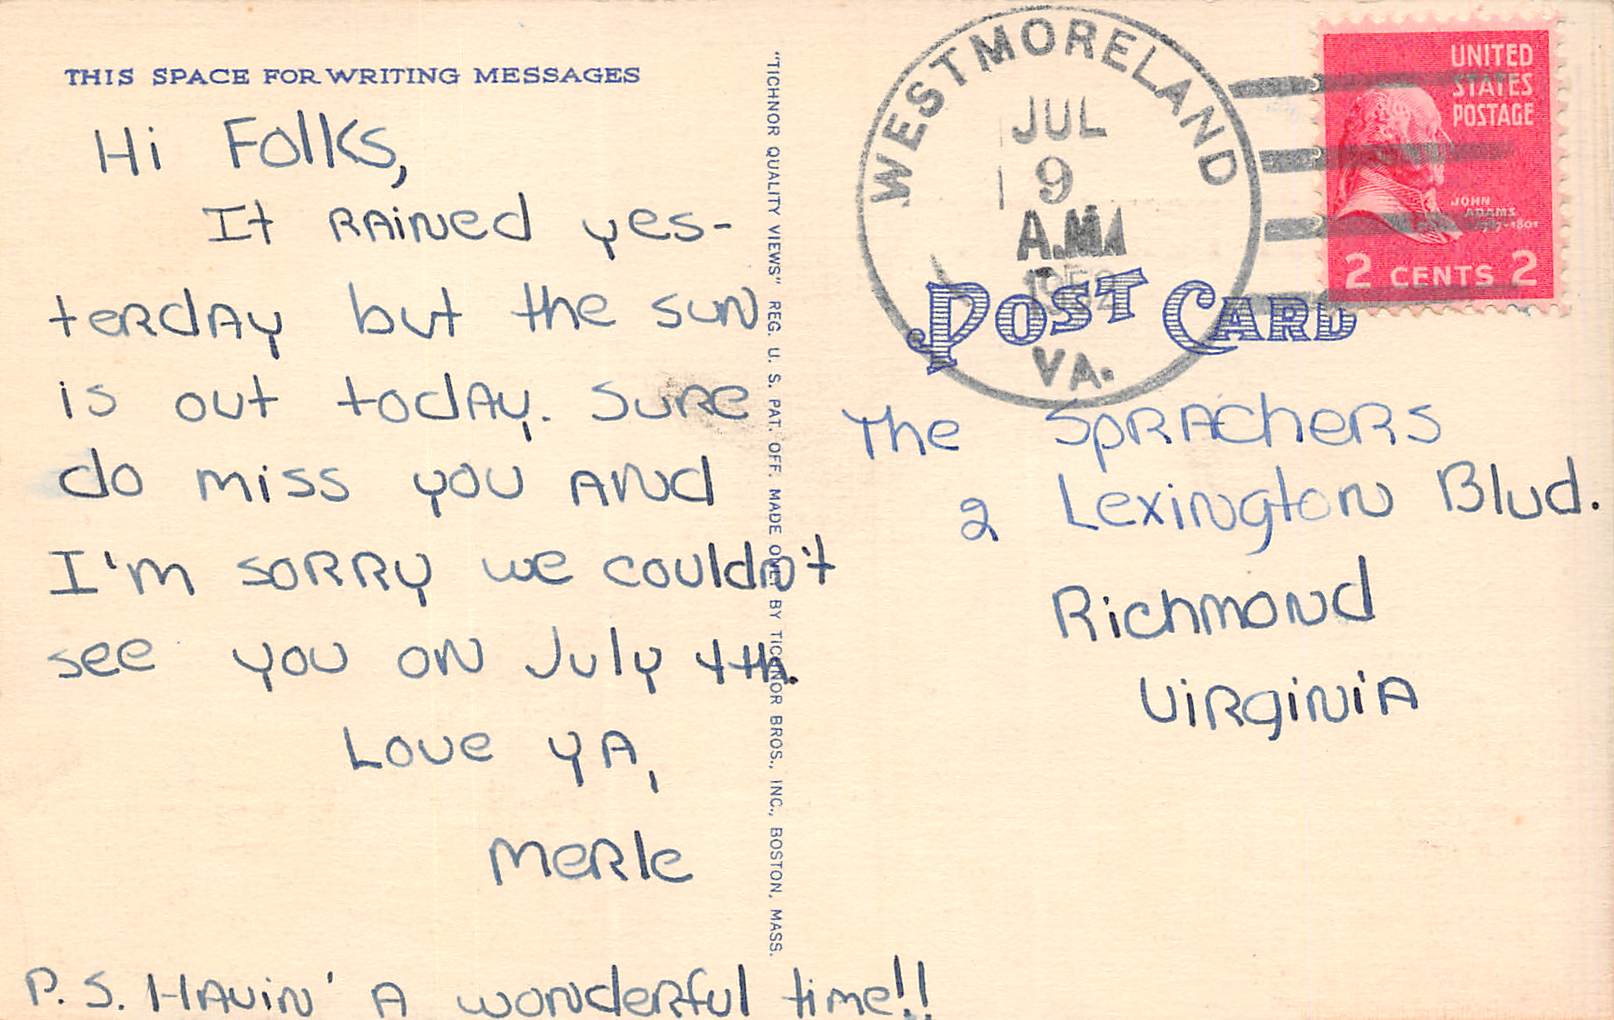 THIS SPACE FOR WRITING MESSAGES
Hi Folks,
It rained yes-
terday but the sun
is out today. Sure
do miss you and
I'm sorry we couldn't
see you on July 4th.
Love ya,
Merle
P.S. Havin' a wonderful time!!
"TICHNOR QUALITY VIEWS" REG. U. S. PAT. OFF. MADE ONLY BY TICHNOR BROS., INC., BOSTON, MASS.
WESTMORELAND
JUL
9
A.M.
VA.
UNITED
STATES
POSTAGE
JOHN
ADAMS
1797-1801
2 CENTS 2
POST CARD
The Sprachers
2 Lexington Blvd.
Richmond
Virginia